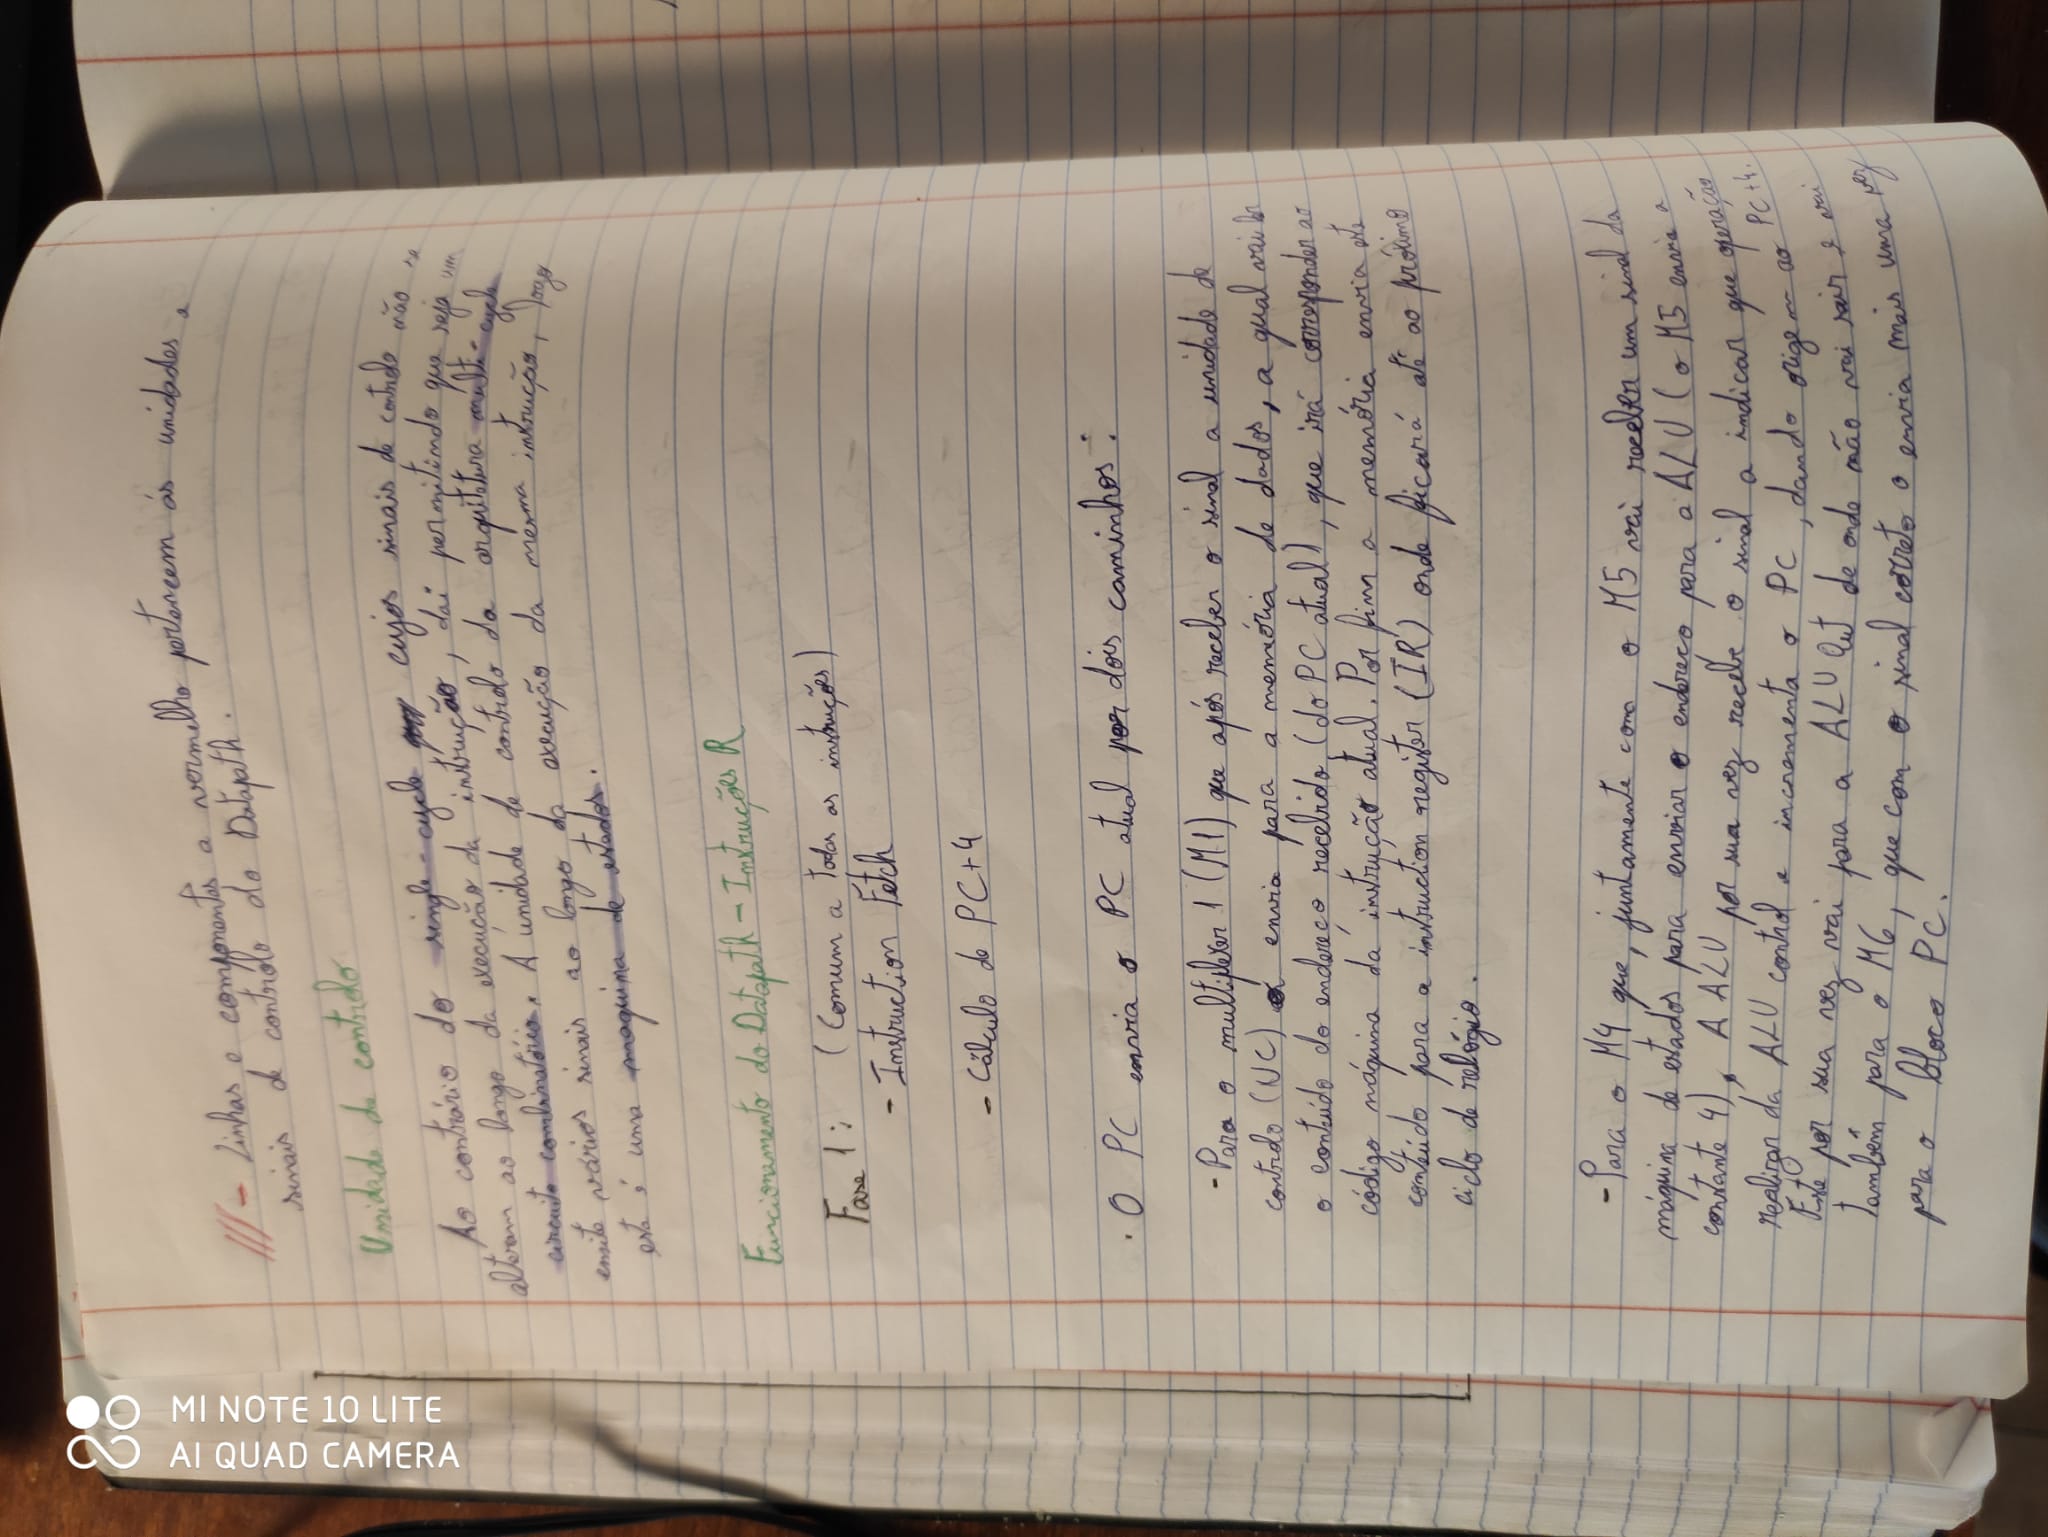 /// - Linhas e componentes a vermelho pertencem ás unidades e
sinais de controlo do Datapath.
Unidade de controlo
Ao contrário do single-cycle cujos sinais de controlo não se
alteram ao longo da execução da instrução, dai permitindo que seja um
circuito combinatório. A unidade de controlo da arquitetura multi-cycle
emite vários sinais ao longo da execução da mesma instrução, logo
esta é uma maquina de estados.
Funcionamento do Datapath - Instruções R
Fase 1: (Comum a todas as instruções)
- Instruction Fetch
- Cálculo de PC+4
. O PC envia o PC atual por dois caminhos:
- Para o multiplexer 1 (M1) que após receber o sinal a unidade de
controlo (UC) envia para a memória de dados, a qual vai ler
o conteúdo do endereço recebido, (do PC atual), que irá corresponder ao
código máquina da instrução atual. Por fim a memória envia este
conteúdo para a instruction register (IR) onde ficará até ao próximo
ciclo de relógio.
- Para o M4 que, juntamente com o M5 vai receber um sinal da
máquina de estados para enviar o endereço para a ALU (o M5 envia a
constante 4). A ALU por sua vez recebe o sinal a indicar que operação
realizar da ALU control e incrementa o PC, dando origem ao PC+4.
Este por sua vez vai para a ALU Out de onde não vai sair e vai
também para o M6, que com o sinal correto o envia mais uma vez
para o bloco PC.
MI NOTE 10 LITE
AI QUAD CAMERA